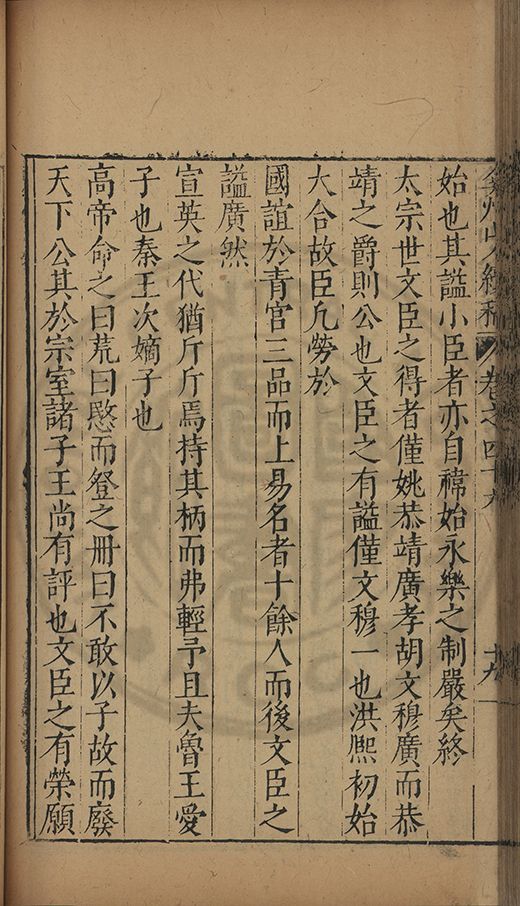 弇州山人續稿 卷之四十九 十九
始也其諡小臣者亦自禕始永樂之制嚴矣終
太宗世文臣之得者僅姚恭靖廣孝胡文穆廣而恭
靖之爵則公也文臣之有諡僅文穆一也洪熙初始
大合故臣凡勞於
國誼於青宫三品而上易名者十餘人而後文臣之
諡廣然
宣英之代猶斤斤焉持其柄而弗輕予且夫魯王愛
子也秦王次嫡子也
高帝命之曰荒曰愍而登之冊曰不敢以子故而廢
天下公其於宗室諸子王尚有評也文臣之有榮願